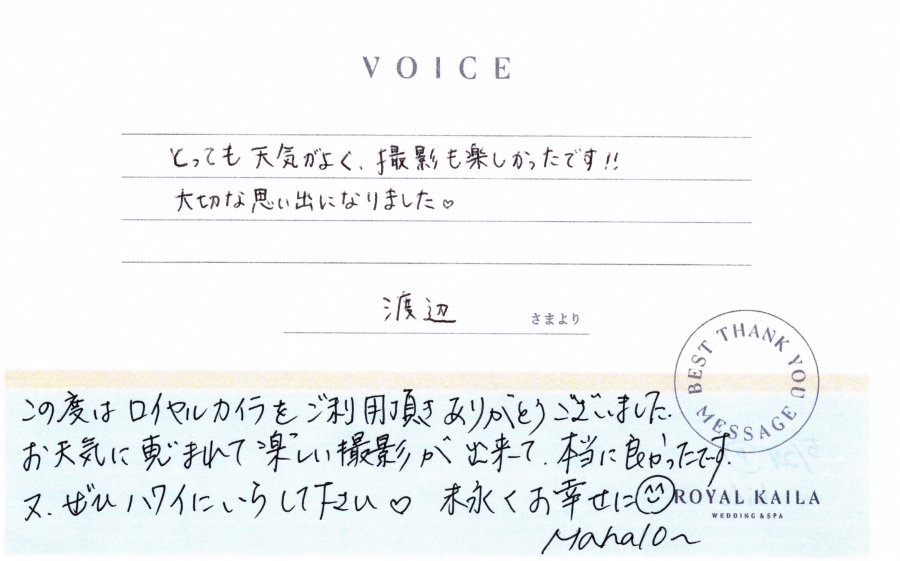 VOICE
とっても天気がよく、撮影も楽しかったです!!
大切な思い出になりました♡
渡辺 さまより
BEST THANK YOU MESSAGE
この度はロイヤルカイラをご利用頂きありがとうございました.
お天気に恵まれて楽しい撮影が出来て、本当に良かったです.
又、ぜひハワイにいらして下さい♡ 末永くお幸せに☺
ROYAL KAILA
WEDDING & SPA
Mahalo~